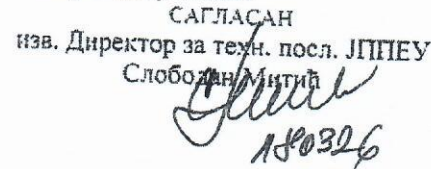 САГЛАСАН
изв. Директор за техн. посл. ЈППЕУ
Слободан Митић
180326